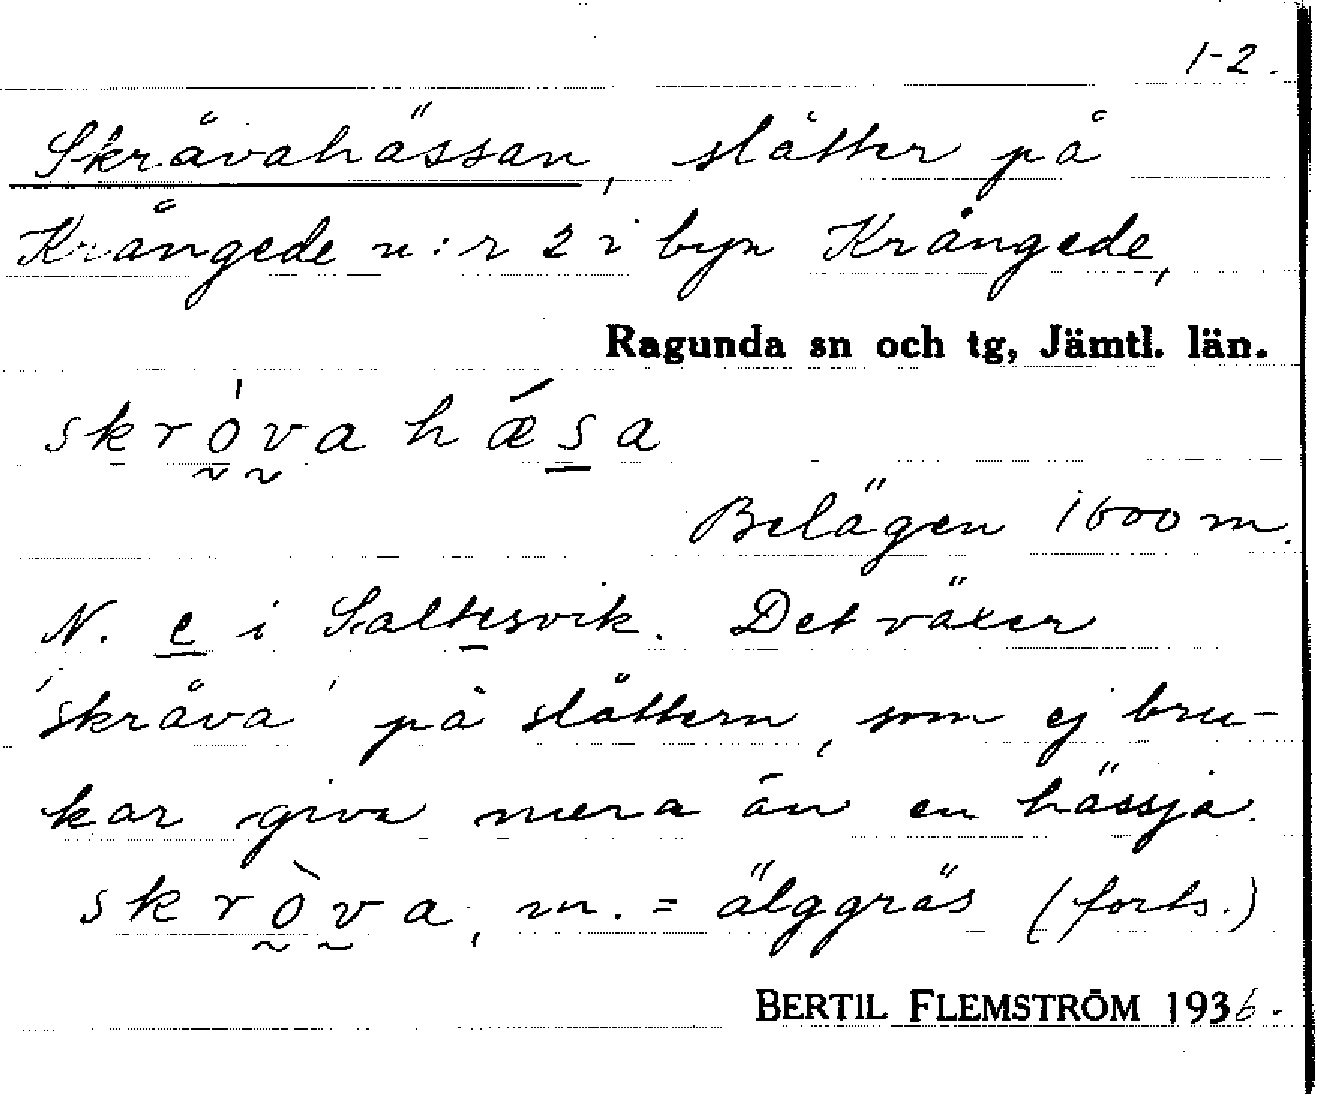 1-2.
Skråvahässan, slåtter på
Krångede n:r 2 i byn Krångede,
Ragunda sn och tg, Jämtl. län.
skrǫ́va hǽsa
Belägen 1600 m.
N. e i Saltesvik. Det växer
'skråva' på slåttern, som ej bru-
kar giva mera än en hässja.
skrǫ̀va, m. = älggräs (forts.)
BERTIL FLEMSTRÖM 1936.